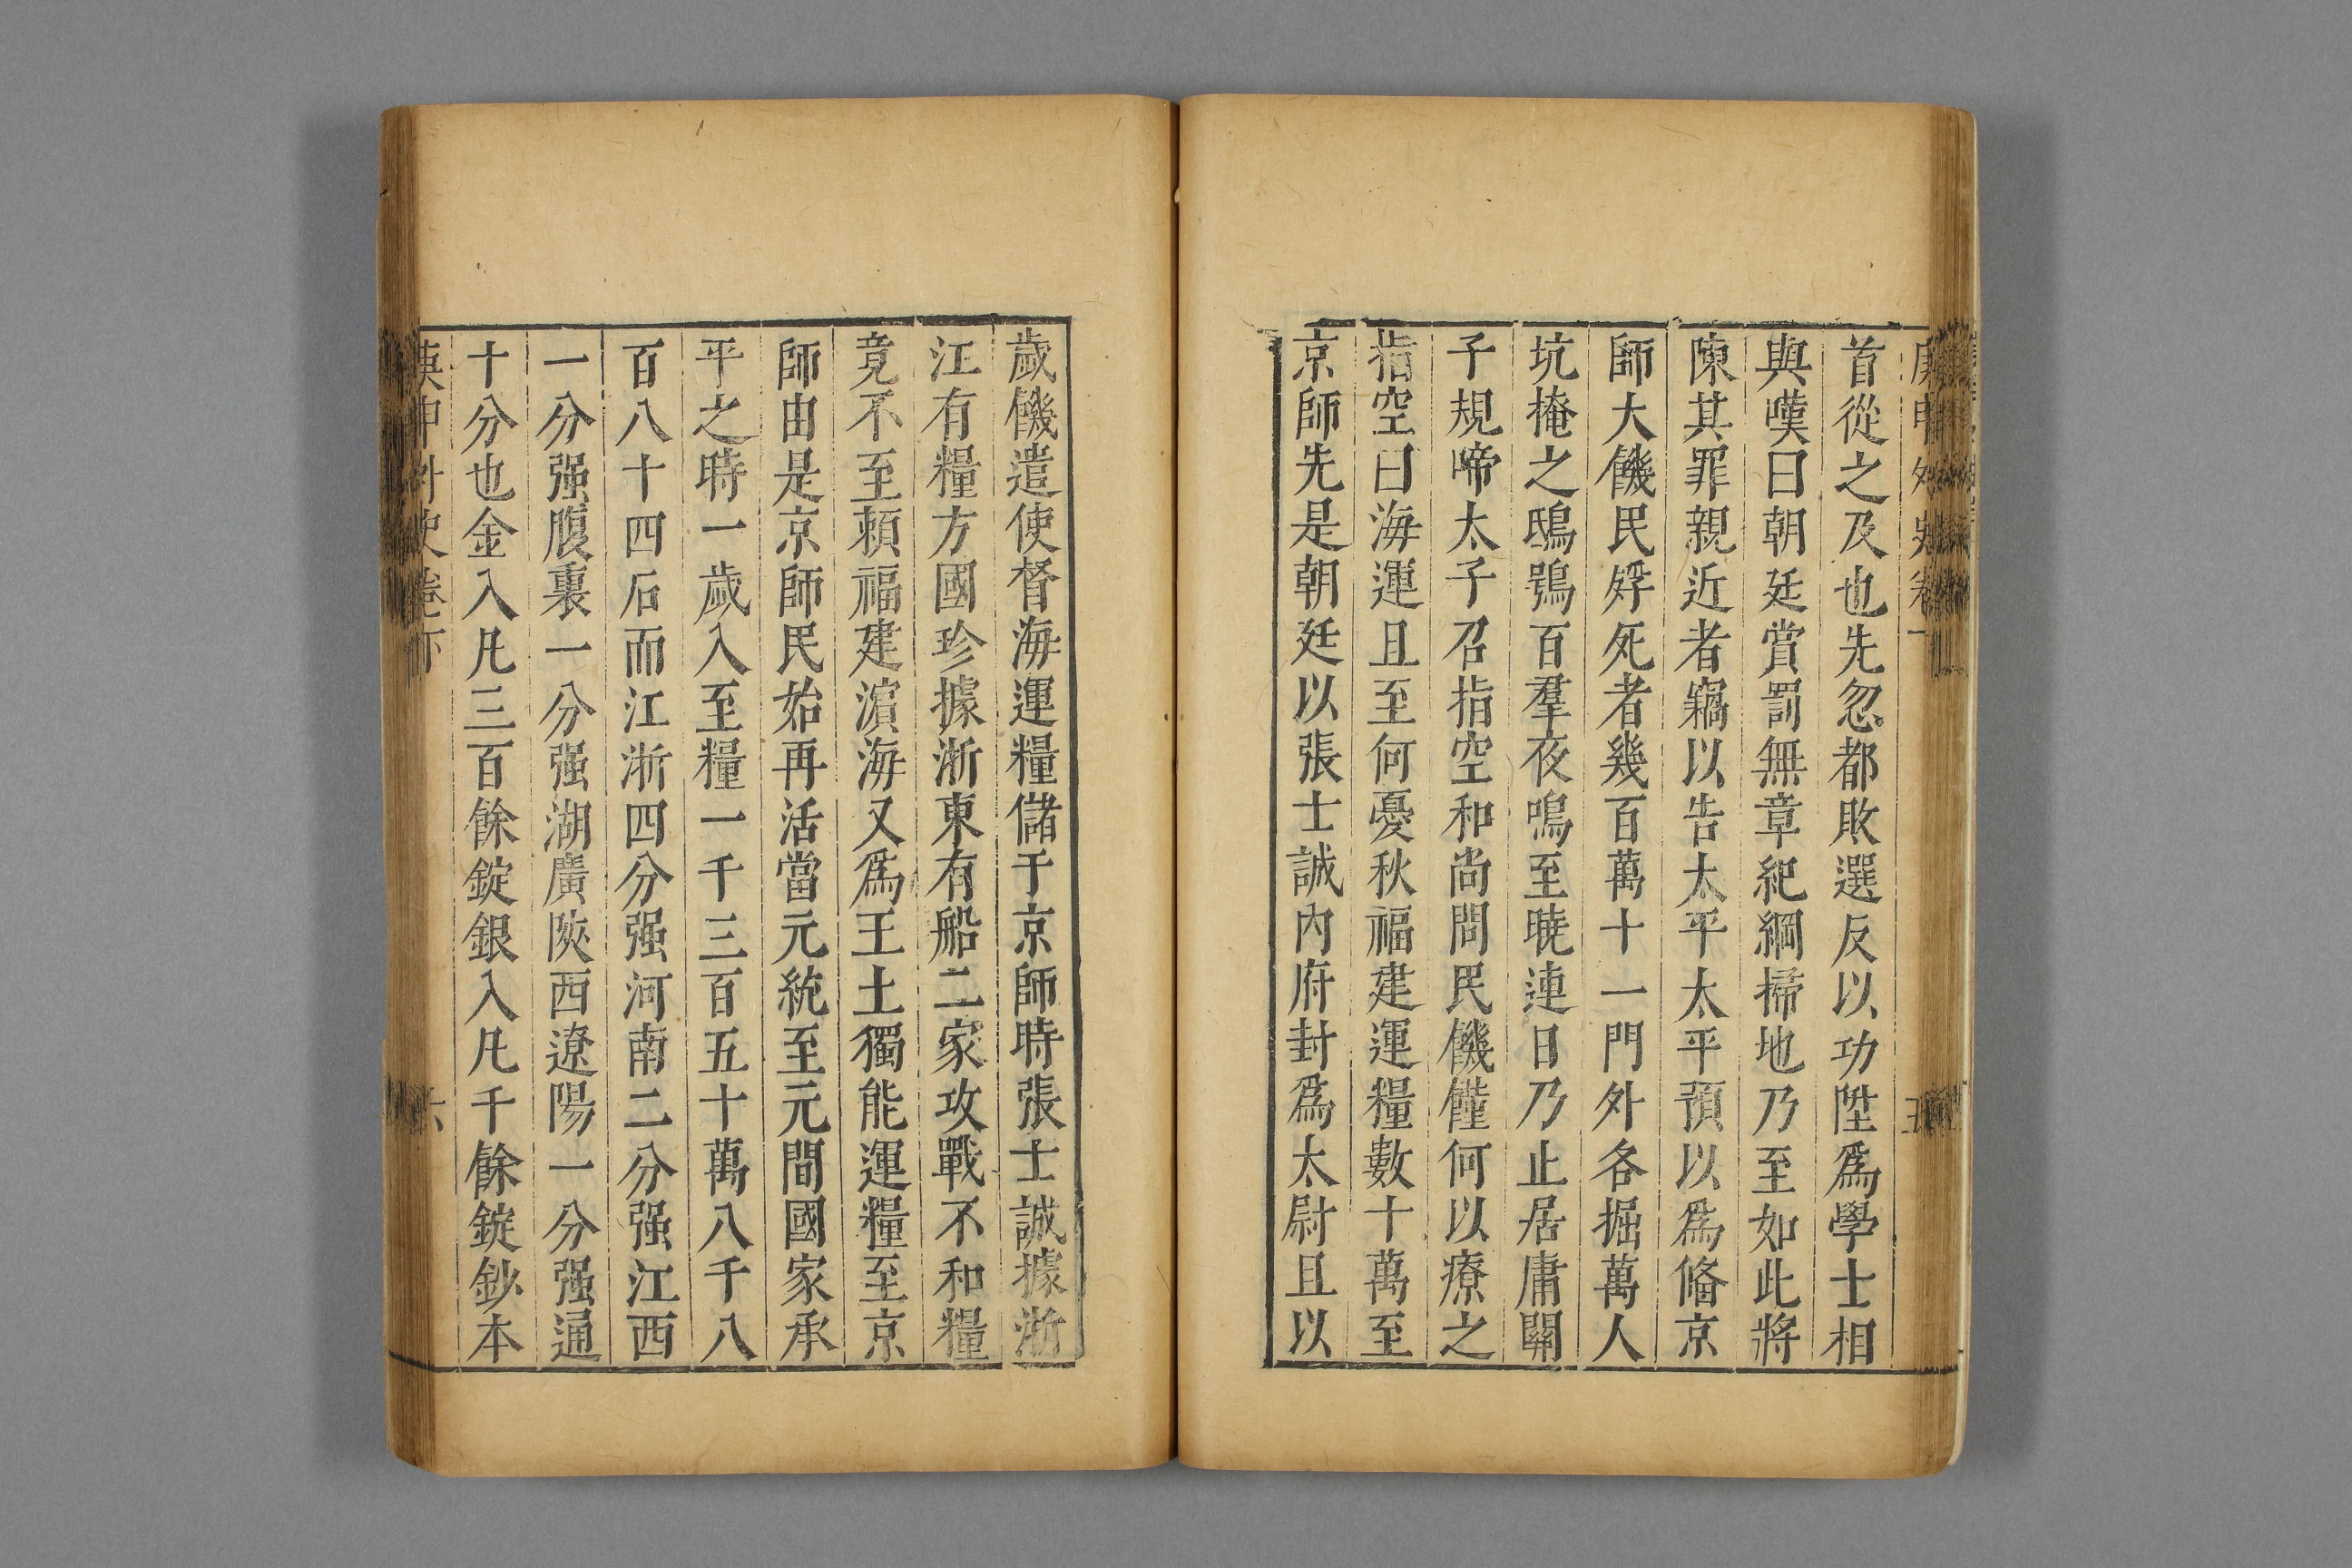 首從之及也先忽都敗選反以功陞爲學士相
與嘆曰朝廷賞罰無章紀綱掃地乃至如此將
陳其罪親近者竊以告太平太平預以爲俻京
師大饑民殍死者幾百萬十一門外各掘萬人
坑掩之鴟鴞百羣夜鳴至曉連日乃止居庸關
子規啼太子召指空和尚問民饑饉何以療之
指空曰海運且至何憂秋福建運糧數十萬至
京師先是朝廷以張士誠内府封爲太尉且以
歲饑遣使督海運糧儲于京師時張士誠據浙
江有糧方國珍據浙東有船二家攻戰不和糧
竟不至賴福建濵海又爲王土獨能運糧至京
師由是京師民始再活當元統至元間國家承
平之時一歲入至糧一千三百五十萬八千八
百八十四石而江浙四分强河南二分强江西
一分强腹裏一分强湖廣陜西遼陽一分强通
十分也金入凡三百餘錠銀入凡千餘錠鈔本
庚申外史卷下 六